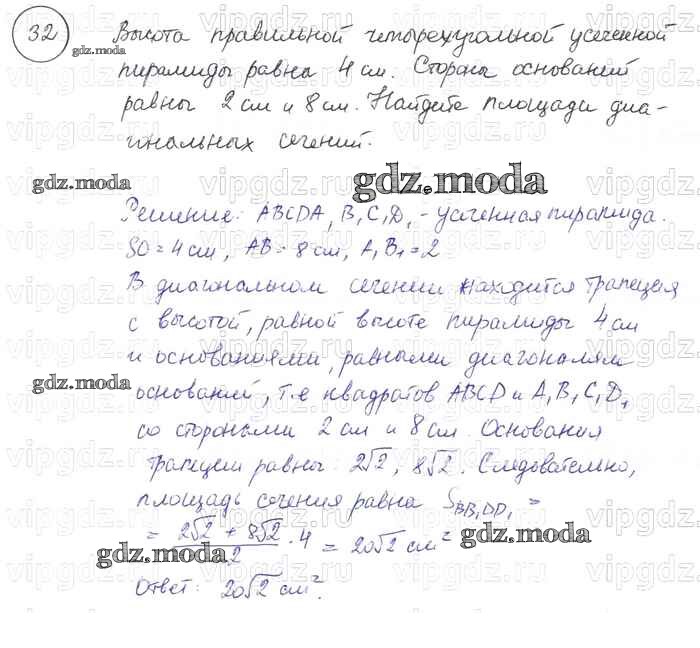 32 Высота правильной четырехугольной усеченной
пирамиды равна 4 см. Стороны оснований
равны 2 см и 8 см. Найдите площади диа-
гональных сечений.
gdz.moda
gdz.moda
gdz.moda
Решение: ABCDA1B1C1D1 - усеченная пирамида.
SO = 4 см, AB = 8 см, A1B1 = 2
В диагональном сечении находится трапеция
с высотой, равной высоте пирамиды 4 см
и основаниями, равными диагоналям
gdz.moda
оснований, т.е квадратов ABCD и A1B1C1D1
со сторонами 2 см и 8 см. Основания
трапеции равны: 2√2, 8√2. Следовательно,
площадь сечения равна SBB1DD1 =
= (2√2 + 8√2)/2 · 4 = 20√2 см²
gdz.moda
gdz.moda
Ответ: 20√2 см².
vipgdz.ru